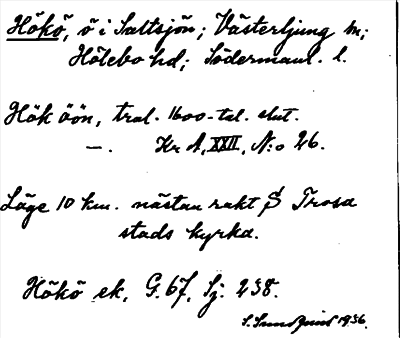 Hökö, ö i Saltsjön; Västerljung sn;
Hölebo hd; Södermanl. l.
Hök öön, tral. 1600-tal. slut.
—. Kr A, XXII, N:o 26.
Läge 10 km. nästan rakt S Trosa
stads kyrka.
Hökö ek. G. 67, Sj: 238.
S. Sundquist 1936.